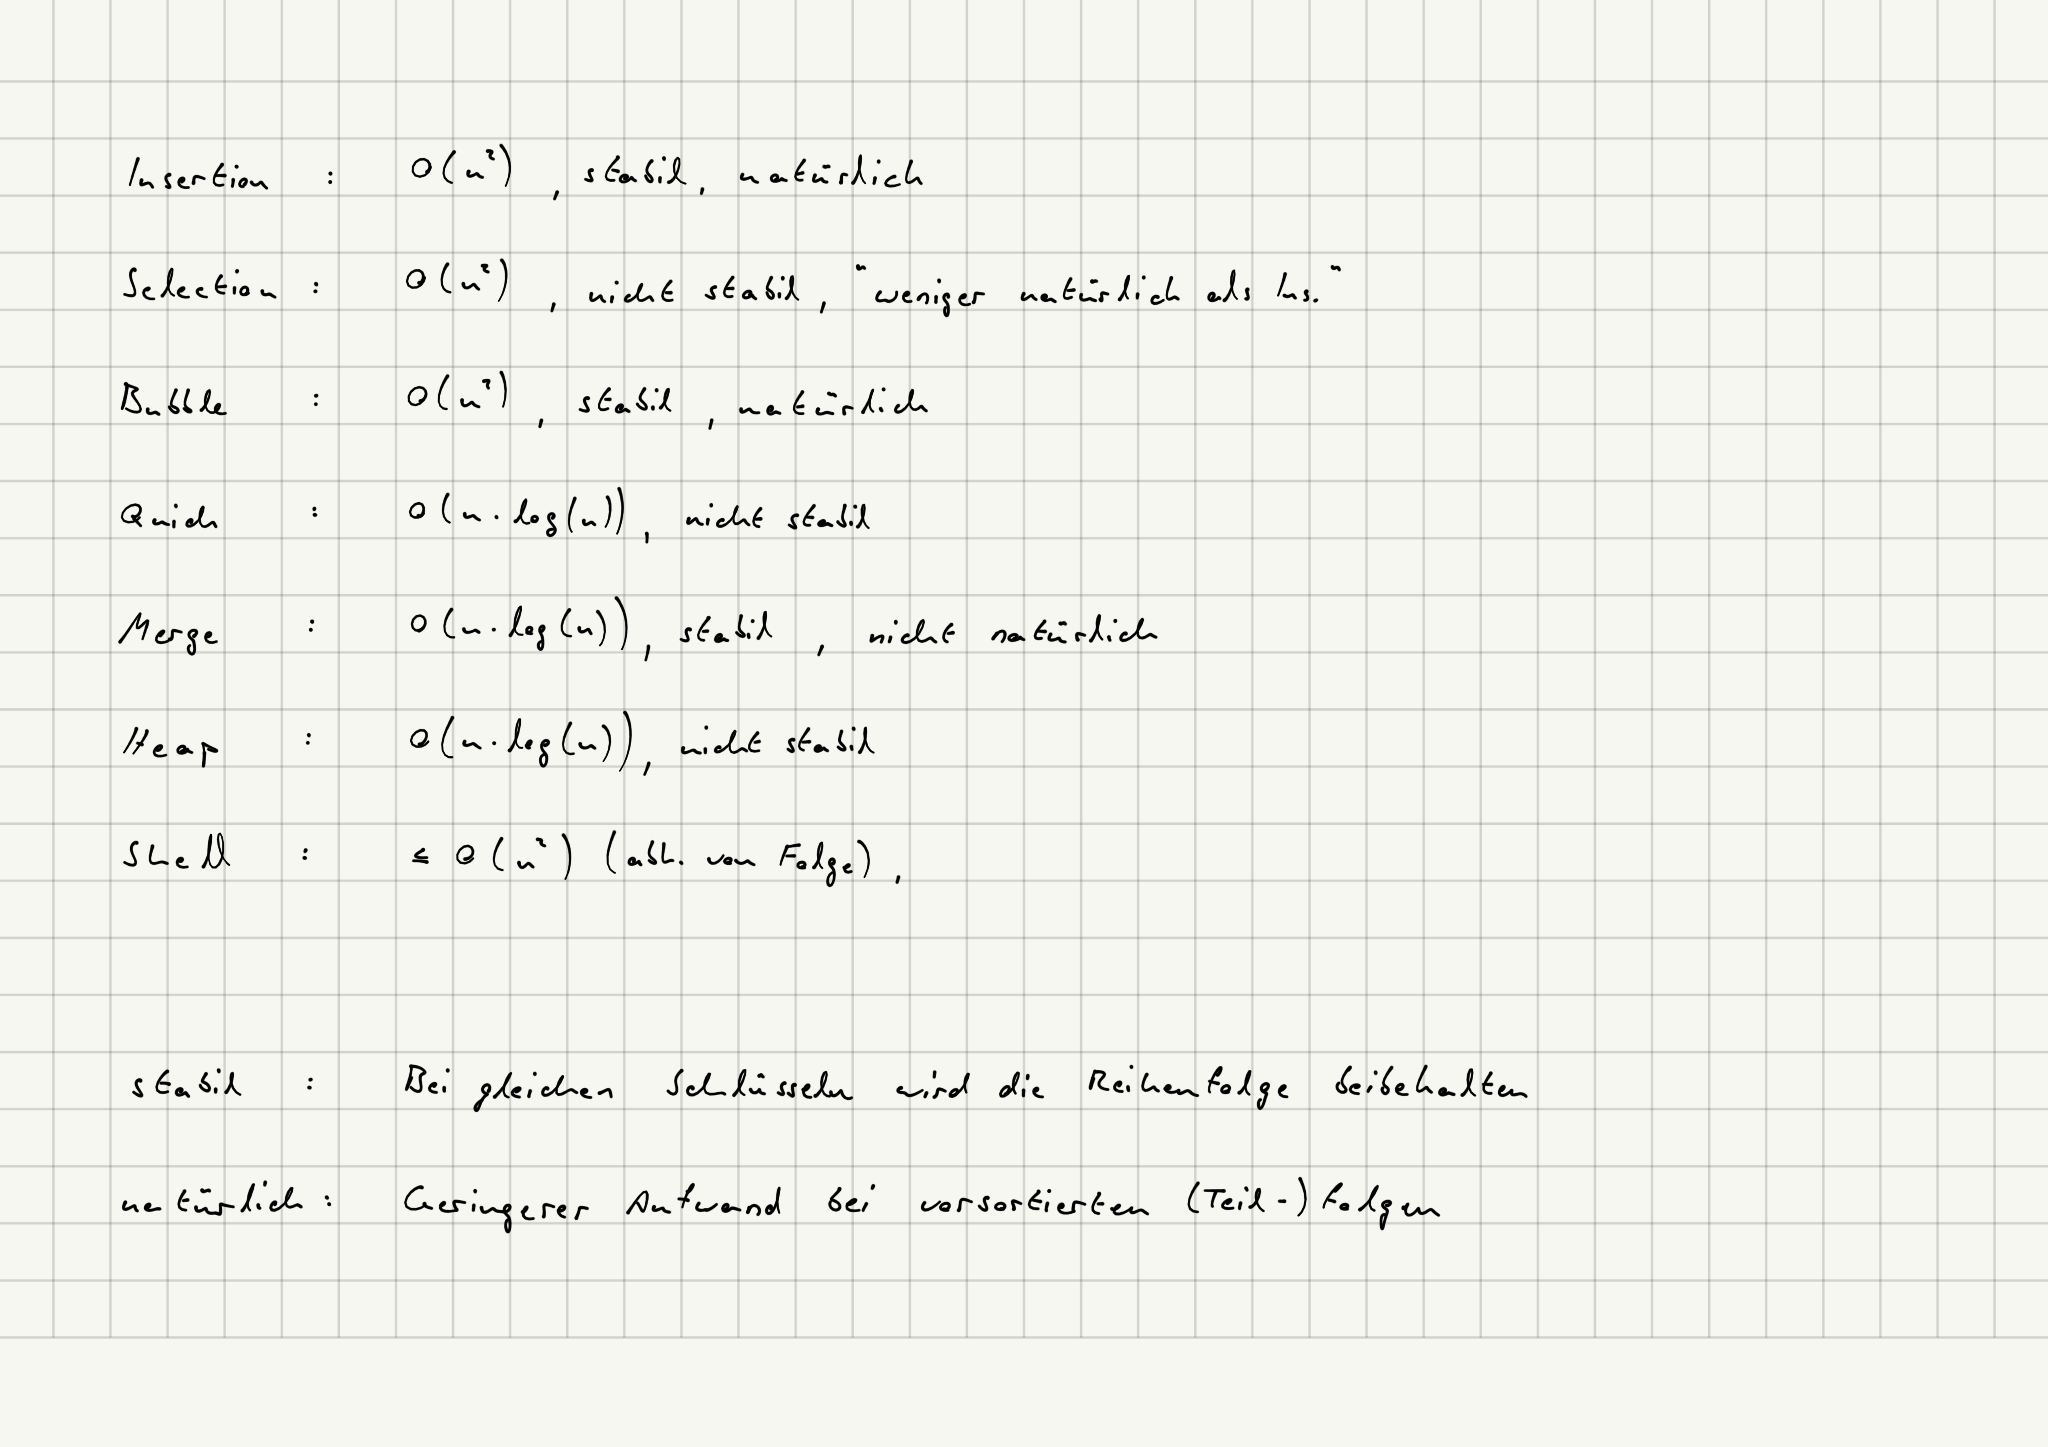 Insertion : O(n²), stabil, natürlich
Selection : O(n²), nicht stabil, "weniger natürlich als Ins."
Bubble : O(n²), stabil, natürlich
Quick : O(n·log(n)), nicht stabil
Merge : O(n·log(n)), stabil, nicht natürlich
Heap : O(n·log(n)), nicht stabil
Shell : ≤ O(n²) (abh. von Folge),
stabil : Bei gleichen Schlüsseln wird die Reihenfolge beibehalten
natürlich : Geringerer Aufwand bei vorsortierten (Teil-)Folgen